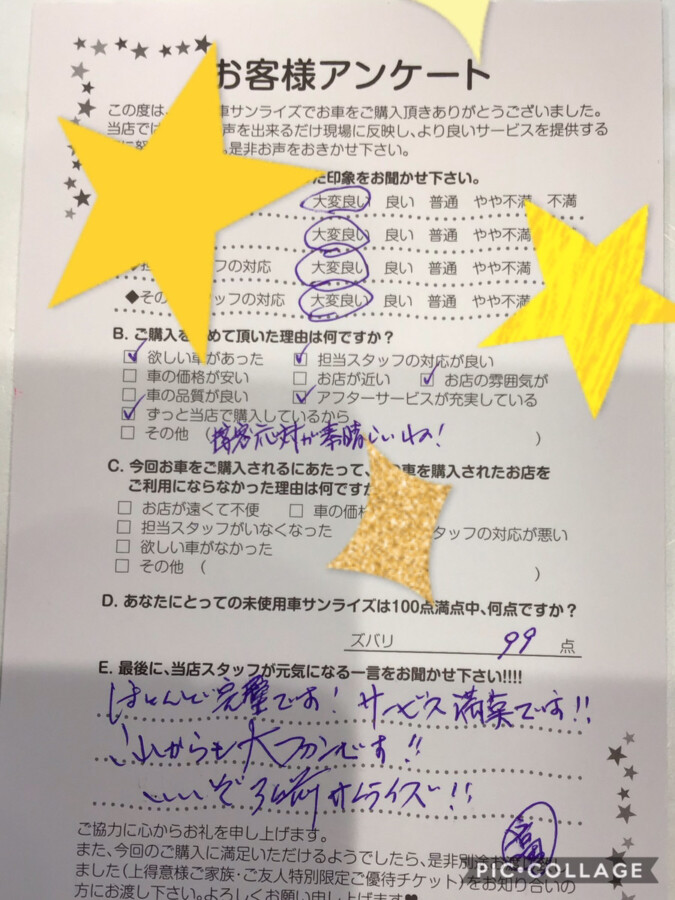 お客様アンケート
この度は、 車サンライズでお車をご購入頂きありがとうございました。
当店では 声を出来るだけ現場に反映し、より良いサービスを提供する
是非お声をおきかせ下さい。
た印象をお聞かせ下さい。
大変良い 良い 普通 やや不満 不満
大変良い 良い 普通 やや不満
担 フの対応 大変良い 良い 普通 やや不満
◆その タッフの対応 大変良い 良い 普通 やや不満
B. ご購入を めて頂いた理由は何ですか?
☑ 欲しい車があった ☑ 担当スタッフの対応が良い
□ 車の価格が安い □ お店が近い ☑ お店の雰囲気が
□ 車の品質が良い ☑ アフターサービスが充実している
☑ ずっと当店で購入しているから
□ その他 (接客応対が素晴しいわ! )
C. 今回お車をご購入されるにあたって、 車を購入されたお店を
ご利用にならなかった理由は何ですか
□ お店が遠くて不便 □ 車の価格
□ 担当スタッフがいなくなった タッフの対応が悪い
□ 欲しい車がなかった
□ その他 ( )
D. あなたにとっての未使用車サンライズは100点満点中、何点ですか?
ズバリ 99 点
E. 最後に、当店スタッフが元気になる一言をお聞かせ下さい!!!!
ほとんど完璧です! サービス満菜です!!
これからも大ファンです!!
いいぞ サンライズ!!
ご協力に心からお礼を申し上げます。
また、今回のご購入に満足いただけるようでしたら、是非別途お渡し
ました(上得意様ご家族・ご友人特別限定ご優待チケット)をお知り合いの
方にお渡し下さい。よろしくお願い申し上げます♥
PIC·COLLAGE